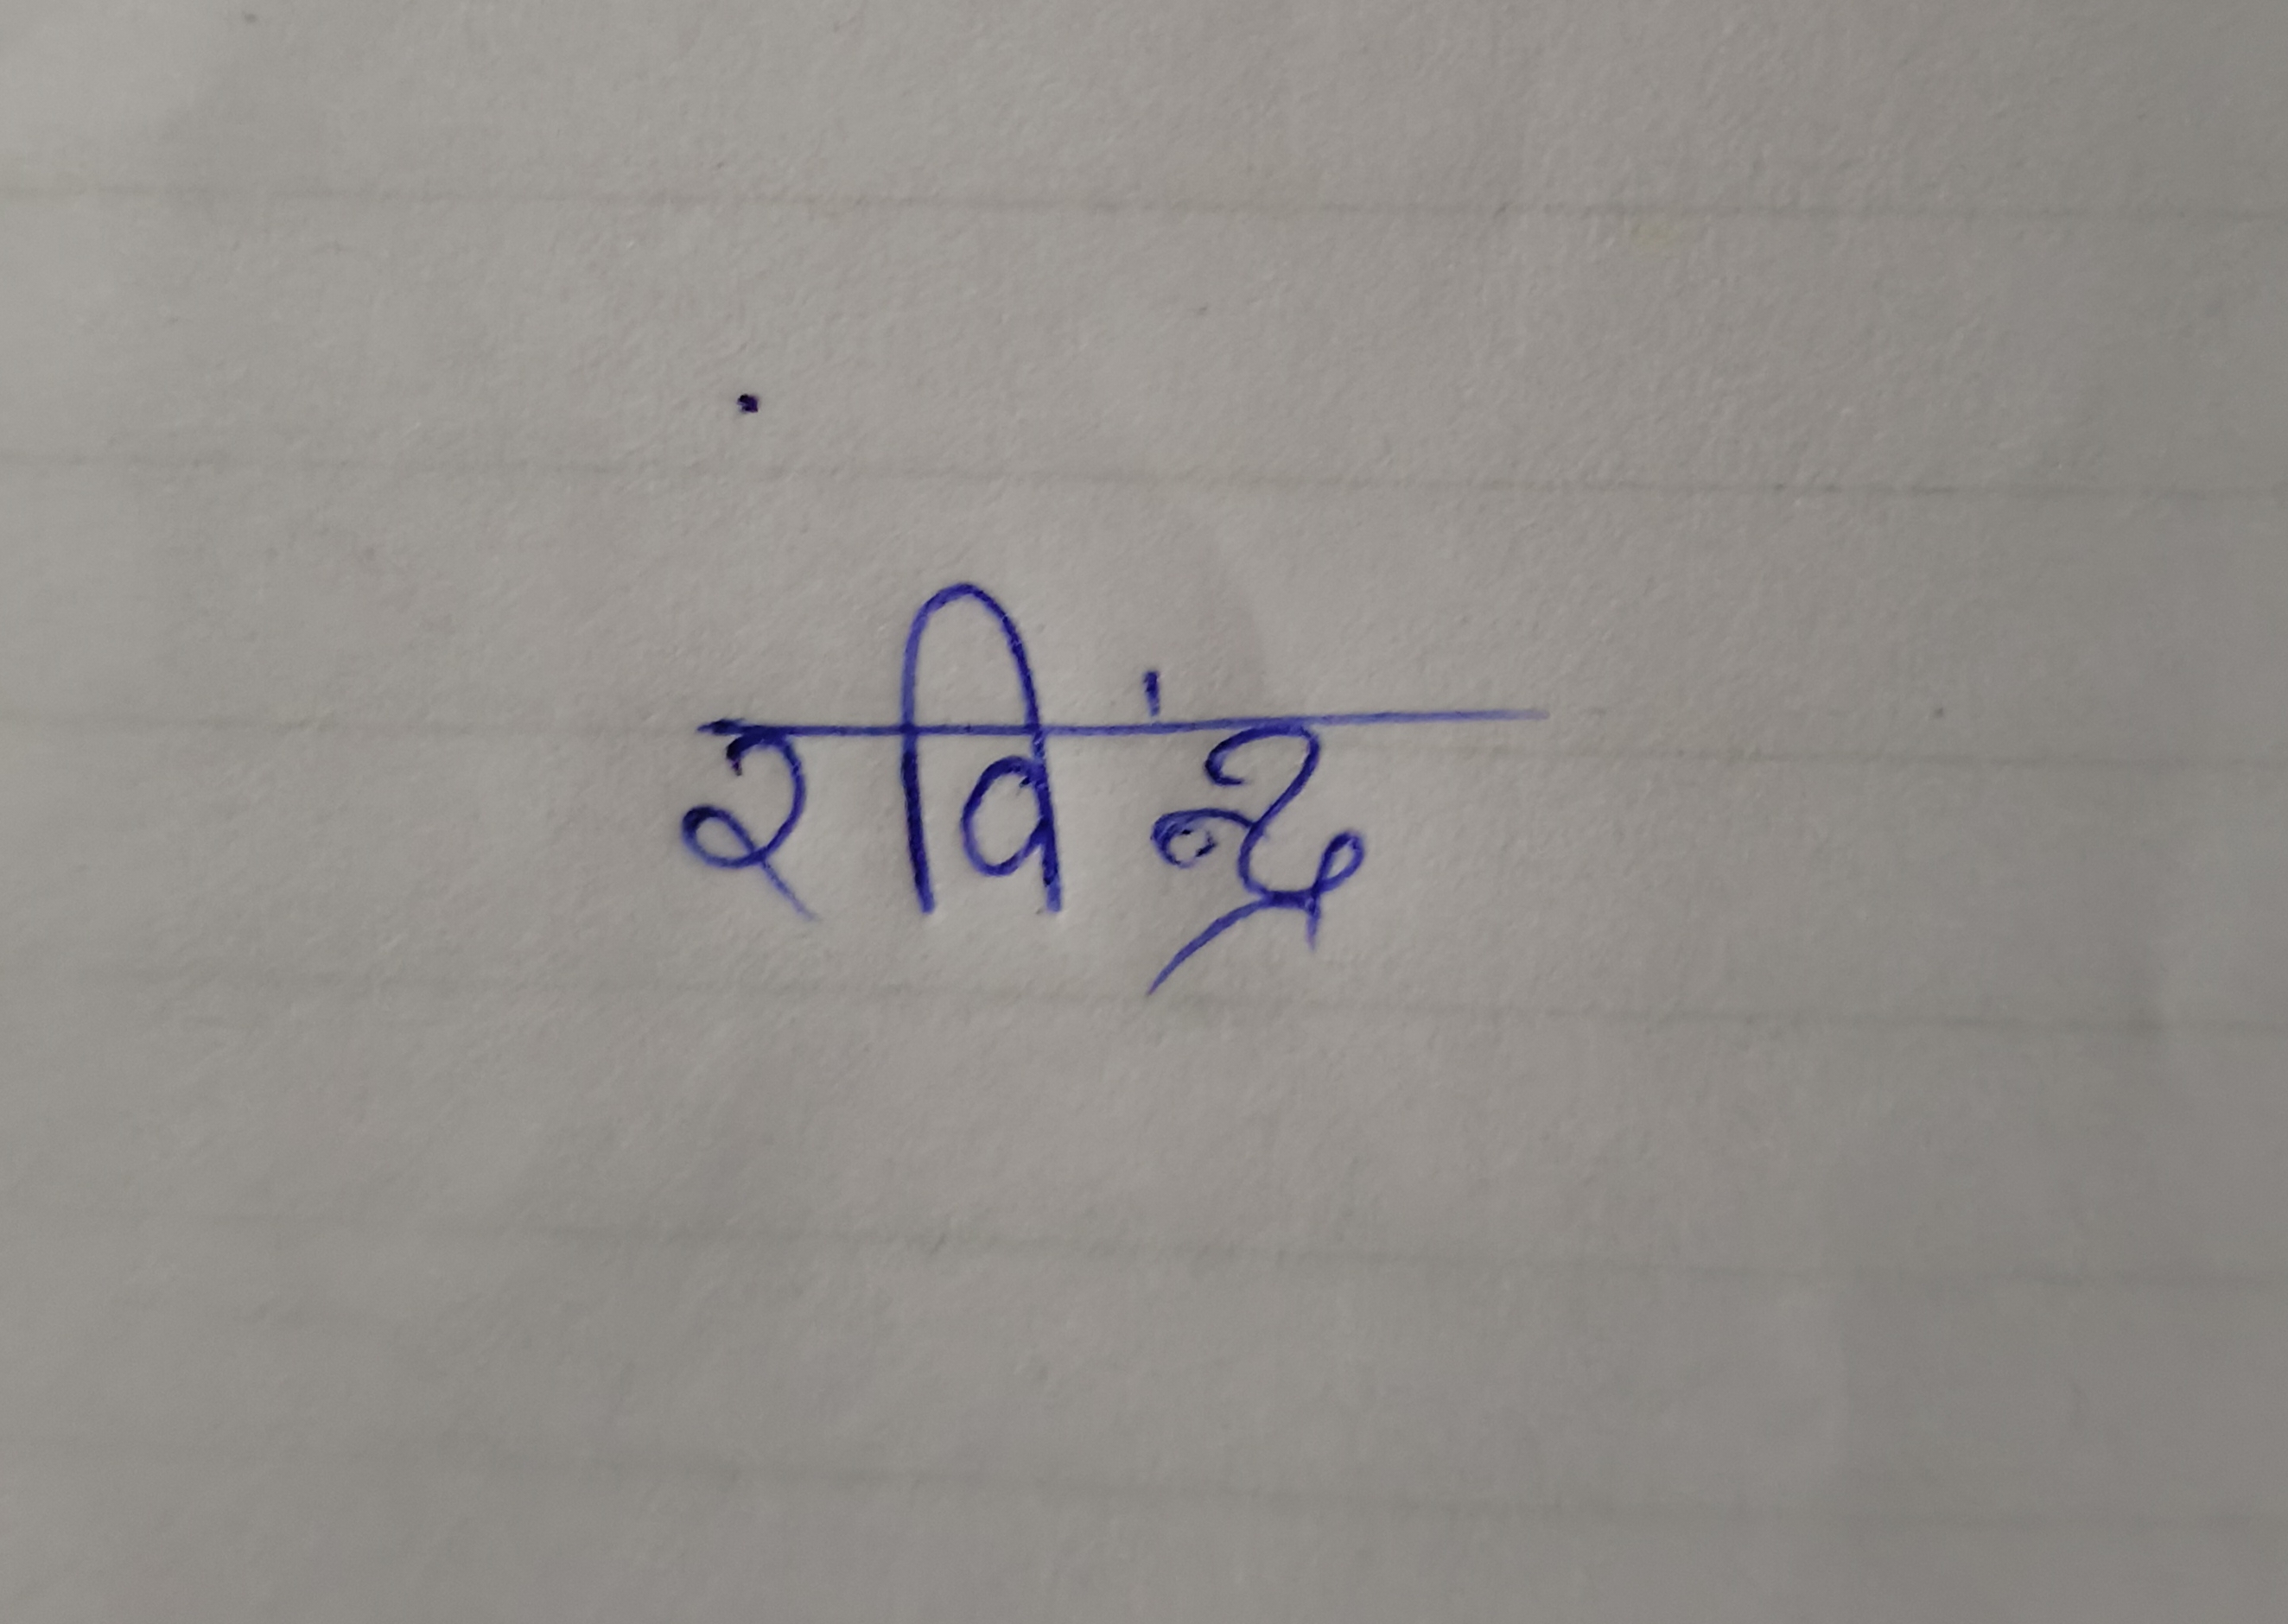 रविंन्द्र